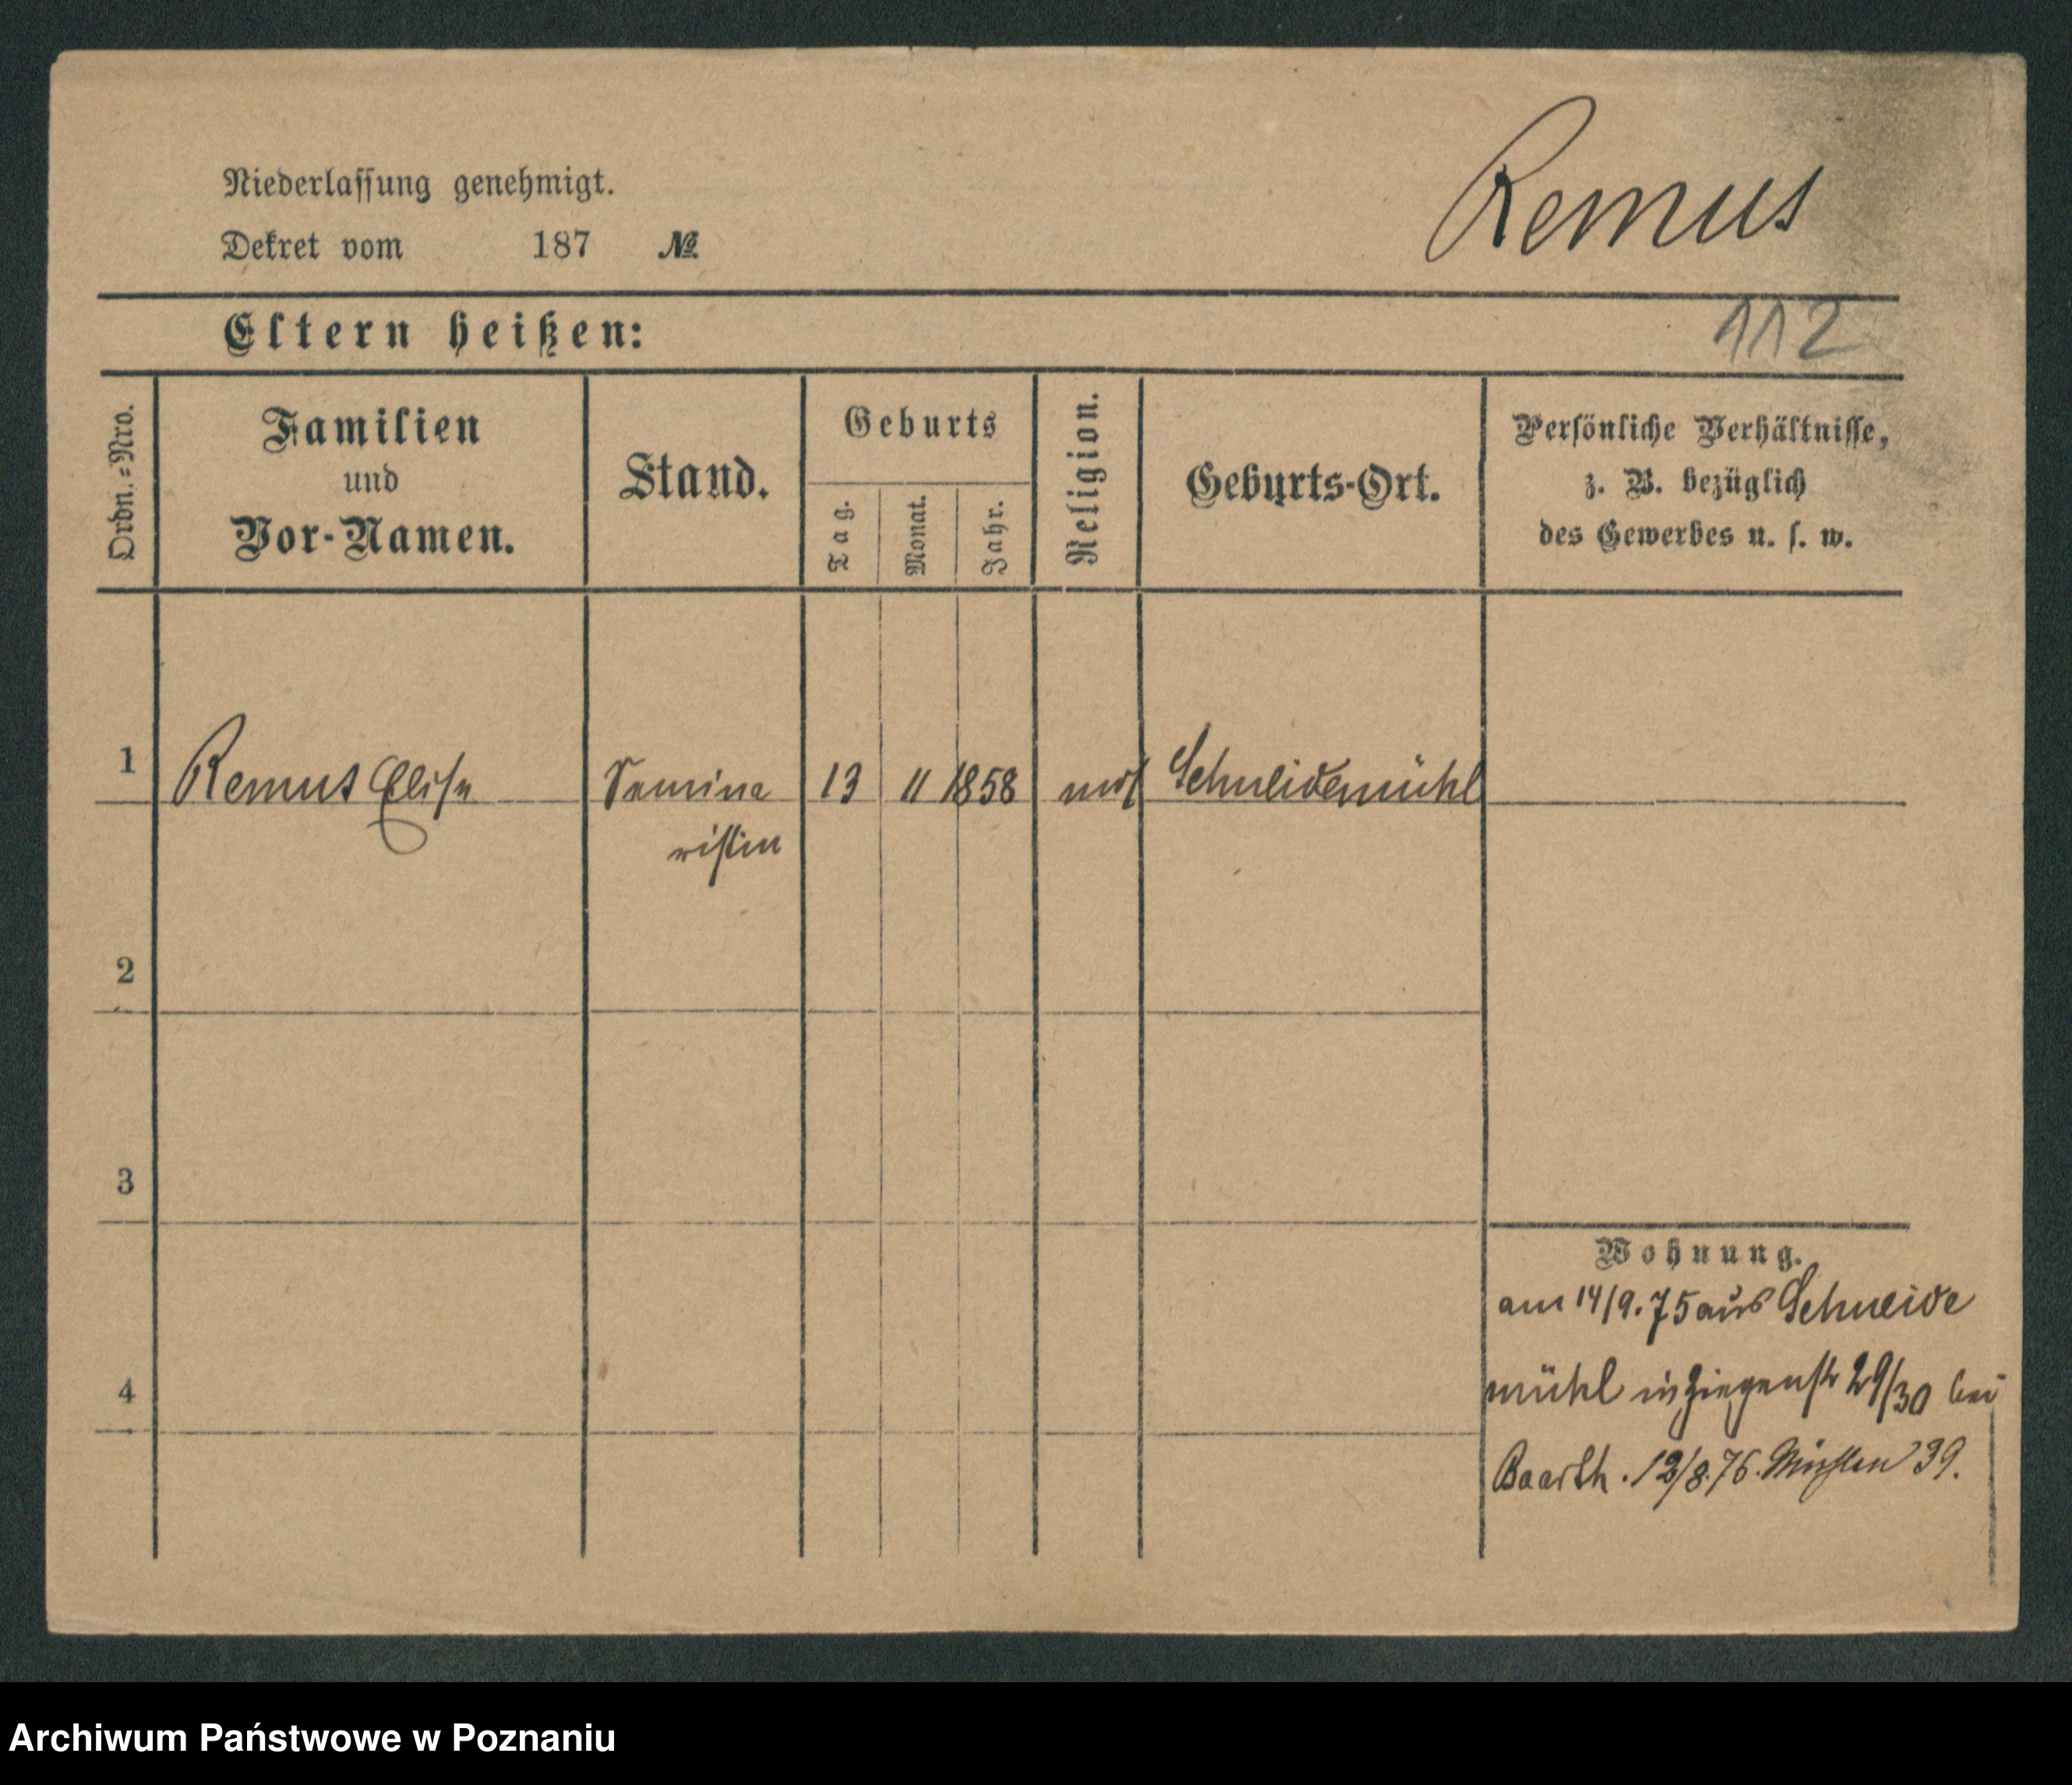 Niederlassung genehmigt.
Remus
Dekret vom 187 №
Eltern heißen:
112
Ordn.=Nro.
Familien
und
Vor-Namen.
Stand.
Geburts
Tag.
Monat.
Jahr.
Religion.
Geburts-Ort.
Persönliche Verhältnisse,
z. B. bezüglich
des Gewerbes u. s. w.
1 Remus Elise Semina 13 11 1858 Schneidemühl
ristin
2
3
Wohnung.
am 14/9.75 aus Schneide
mühl in Ziegenstr 29/30 bei
4
Baarth. 12/8.76. Mühlen 39.
Archiwum Państwowe w Poznaniu